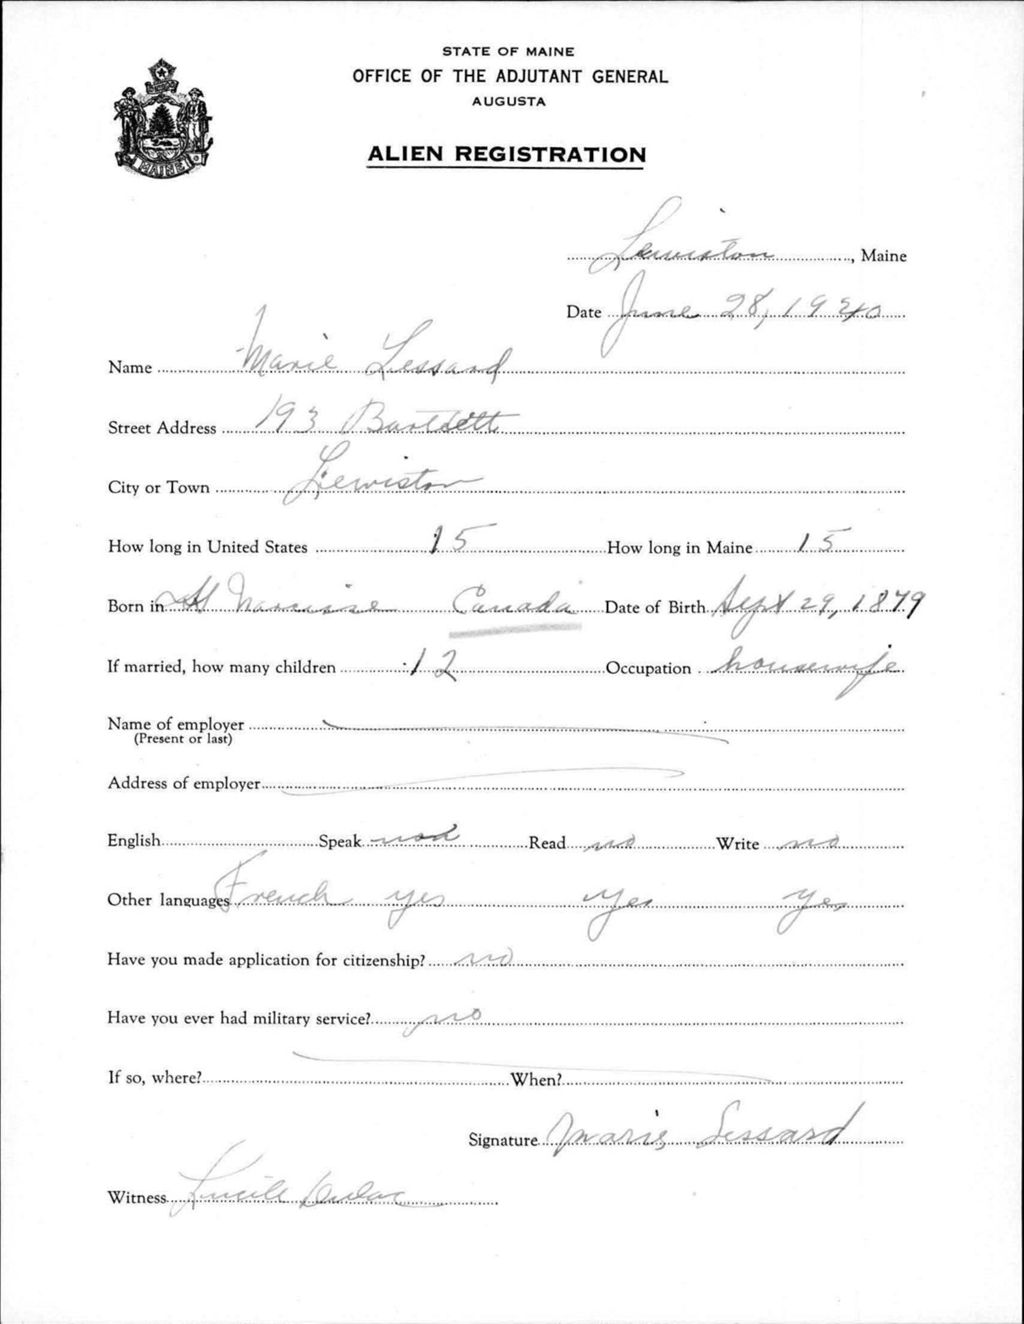 STATE OF MAINE
OFFICE OF THE ADJUTANT GENERAL
AUGUSTA
ALIEN REGISTRATION
MAINE
Lewiston, Maine
Date June 28, 1940
Name Marie Lessard
Street Address 193 Bartlett
City or Town Lewiston
How long in United States 15 How long in Maine 15
Born in St Narcisse Canada Date of Birth Sept 29, 1879
If married, how many children 12 Occupation housewife
Name of employer
(Present or last)
Address of employer
English Speak Read no Write no
Other languages French yes yes yes
Have you made application for citizenship? no
Have you ever had military service? no
If so, where? When?
Signature Marie Lessard
Witness Lucille Dulac